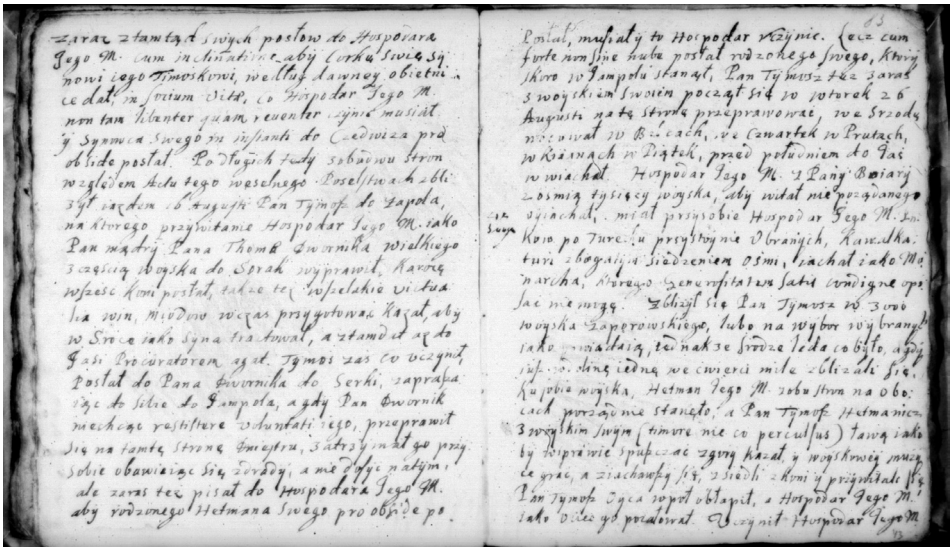 zaraz ztamtąd swych posłow do Hospodara
Jego M. cum inclinatione, aby Corkę Swię sy
nowi iego Timoskowi, według dawney obietni
ce dał, in socium Vitæ, co Hospodar Jego M.
non tam libenter quam reverenter czynić musiał
y Synowca Swego in
obside posłał. Po długich tedy zobudwu Stron
względem Actu tego weselnego Poselstwach zbli
zył 16 Augusti Pan Tymosz do
na ktorego przywitanie Hospodar Jego M. iako
Pan mądry Pana Thomę Dwornika wielkiego
z częscią woyska do Sorak wyprawił, Karocę
wszesc koni posłał, takze tez wszelakie victua
lia win, miodow wczas przygotowac Kazał, aby
w Sroce iako Syna tractował, a ztamtąd az do
Jasi Procuratorem agat. Tymos zas co uczynił,
Posłał do Pana Dwornika do Serki, zaprasza
iąc do sibie do Jampola, a gdy Pan Dwornik
niechcąc resistere Voluntati iego, przeprawił
się na tamtę Stronę Dniestru, zatrzymał go przy
sobie obawiaiąc się zdrady, a nie dosyc natym,
ale zaras tez pisał do Hospodara Jego M.
aby rodzonego Hetmana Swego pro obside po
Posłał, musiał y to Hospodar uczynic. Lecz cum
forte non sine nube posłał rodzonego swego, ktory
skoro w Jampolu stanął, Pan Tymosz tuz zaras
z woyskiem Swoim począł się w wtorek 26
Augusti na tę Stronę przeprawowac, we Srzodę
nocował w, we Czwartek w Prutach,
w w Piątek, przed południem do Jas
w wiachał. Hospodar Jego M. z Pany Boiary
z osmią tysięcy woyska, aby witał nie pożądanego
wyiachał, miał przysobie Hospodar Jego M.
po Turecku przystoynie Ubranych, Kawalka
turi siedzeniem osmi, iachał iako Mo
narcha, ktorego generositatem satis condigne opi
sac niemogę. Zblizył się Pan Tymosz w 3000
woyska Zaporowskiego, lubo na wybor wybranych
iako powiadaią, iednakze srodze leda co było, a gdy
iuz godzinę iednę we cwierci mile zblizali się
Ku sobie woyska, Hetman Jego M. zobu stron na obo
cach porządnie stanęło, a Pan Tymosz Hetmanicz
z woyskim swym (timore nie co perculsus) ławą iako
by toiprawie spuszczac zgory Kazał, y woyskowey muzy
ce grac, a ziachawszy się, zsiedli z koni y przywitali się
Pan Tymosz Oyca wpoł obłapił, a Hospodar Jego M.
iako Ociec go pocałował. Uczynił Hospodar Jego M